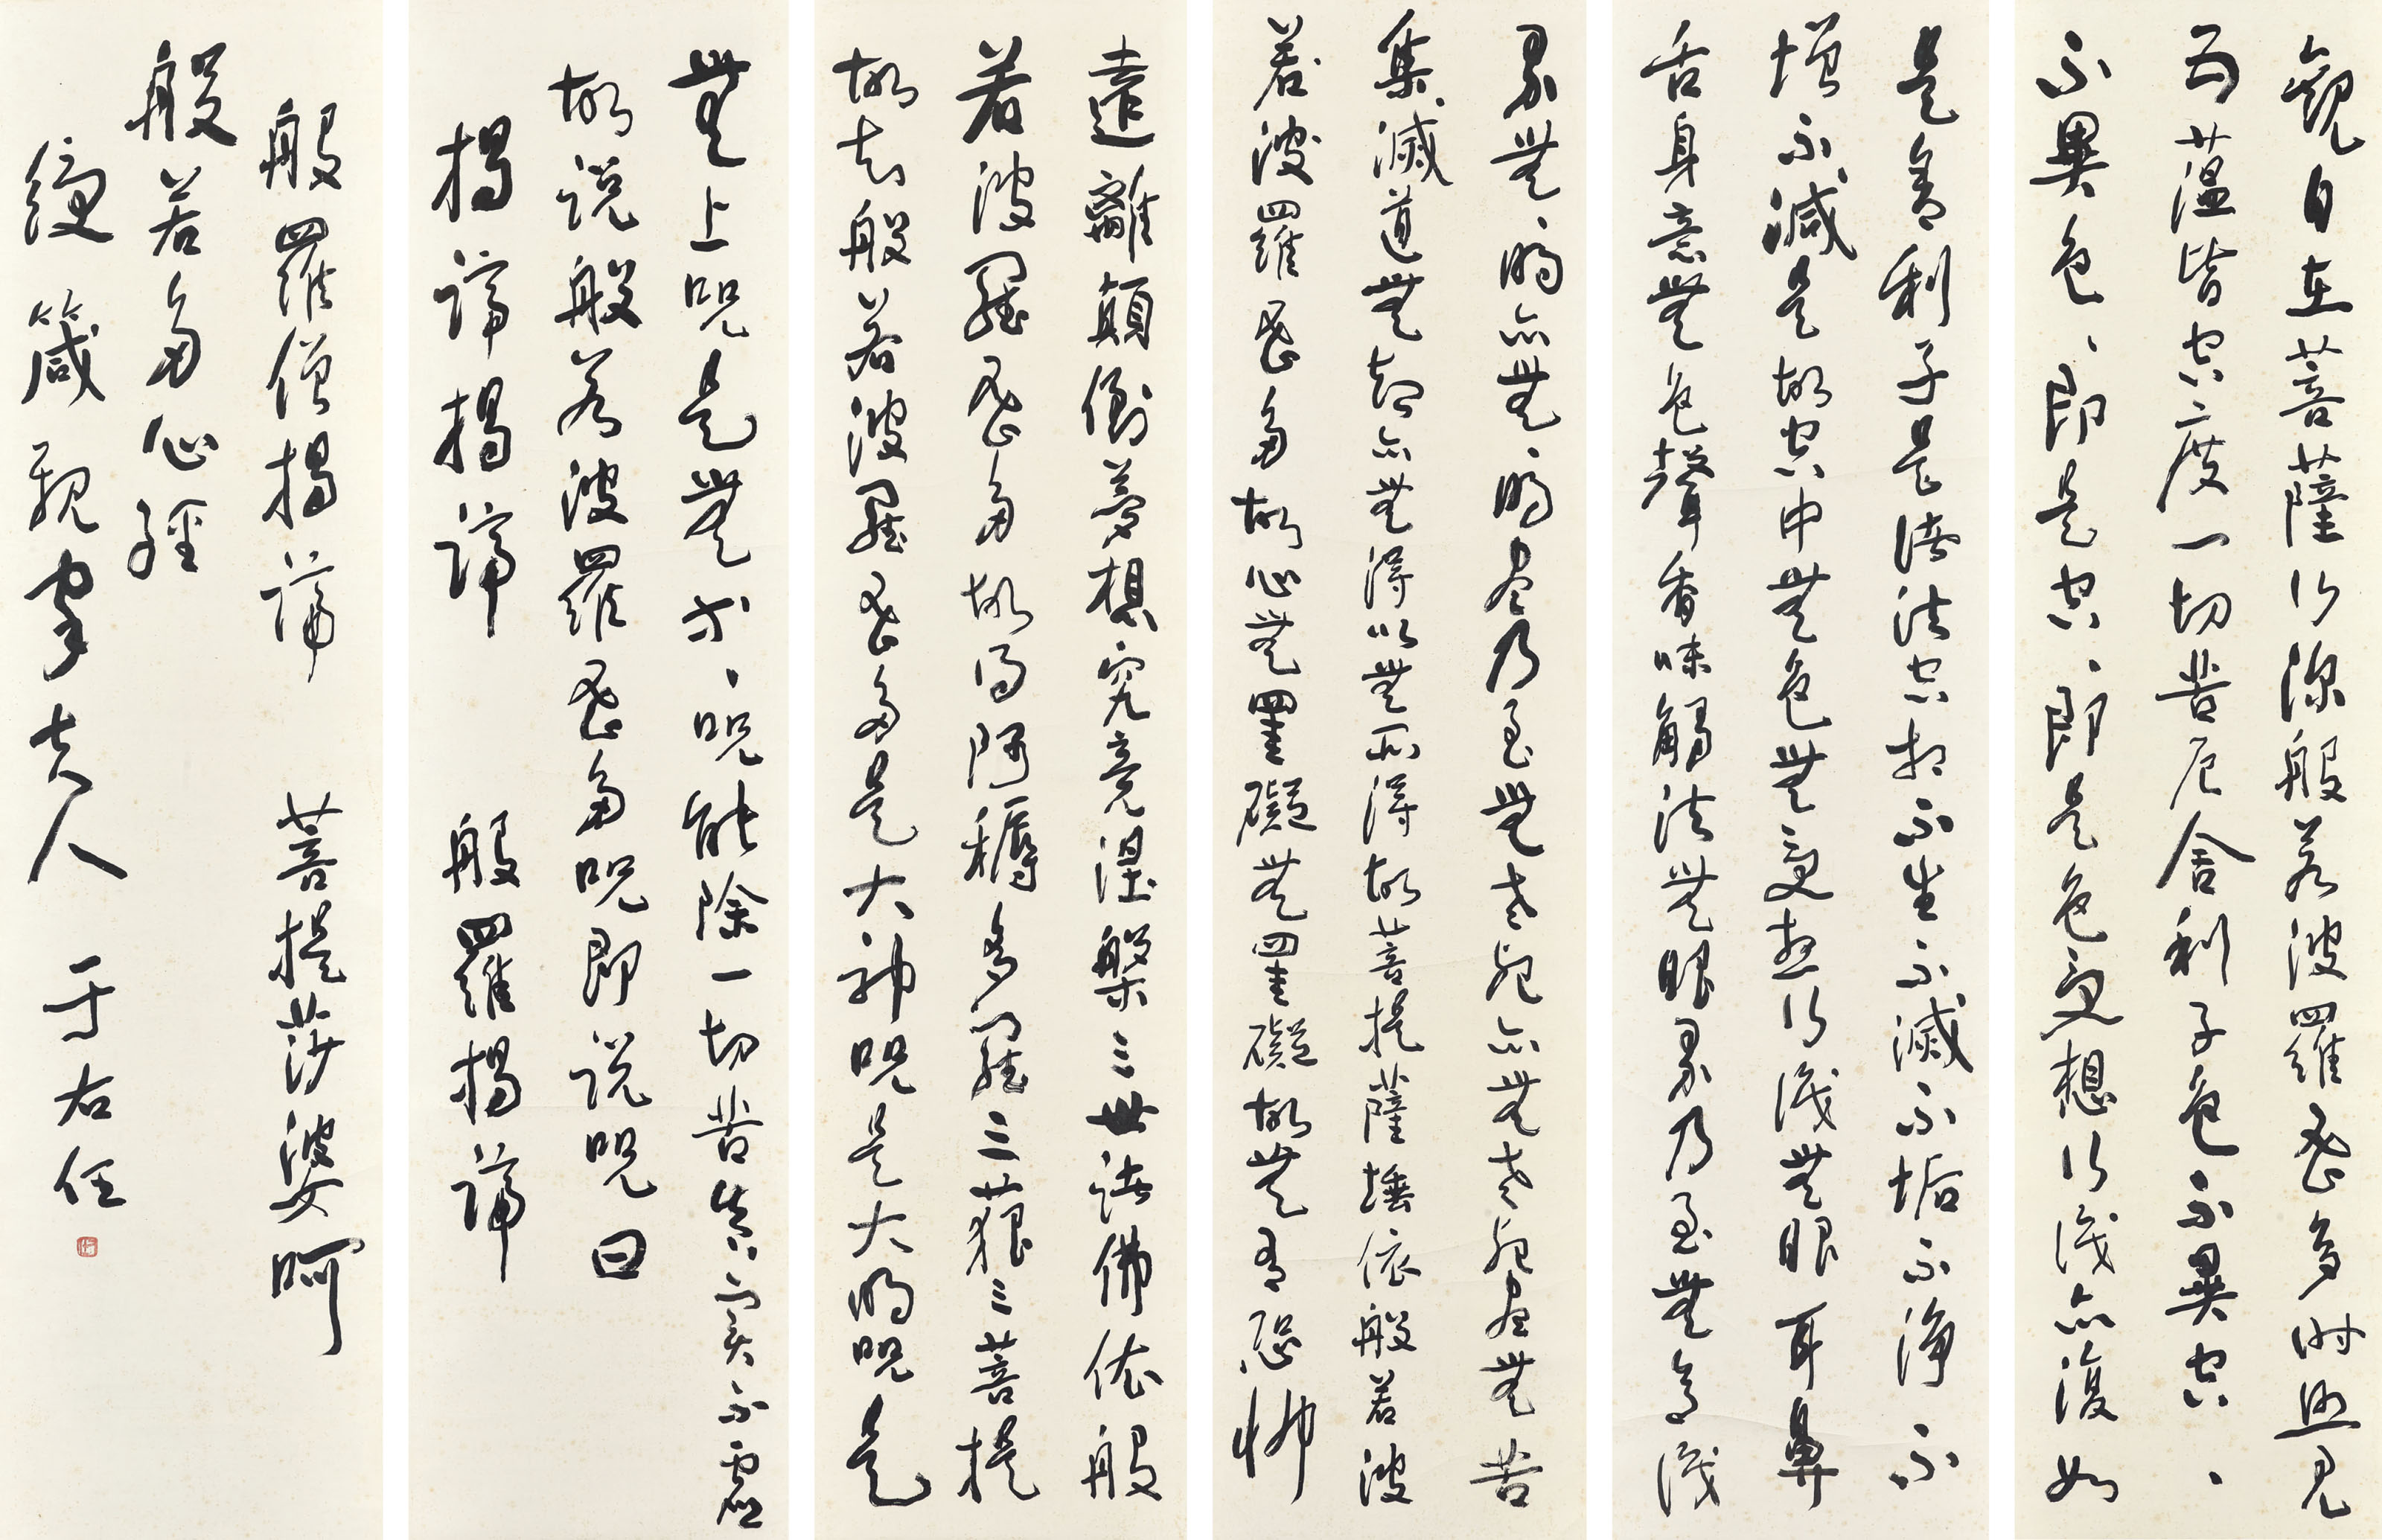 觀自在菩薩行深般若波羅蜜多時照見
五蘊皆空度一切苦厄舍利子色不異空、
不異色、即是空、即是色受想行識亦復如
是舍利子是諸法空相不生不滅不垢不淨不
增不減是故空中無色無受想行識無眼耳鼻
舌身意無色聲香味觸法無眼界乃至無意識
界無、明亦無、明盡乃至無老死亦無老死盡無苦
集滅道無智亦無得以無所得故菩提薩埵依般若波
若波羅蜜多故心無罣礙無罣礙故無有恐怖
遠離顛倒夢想究竟涅槃三世諸佛依般
若波羅蜜多故得阿耨多羅三藐三菩提
故知般若波羅蜜多是大神咒是大明咒是
無上咒是無等、咒能除一切苦真實不虛
故說般若波羅蜜多咒即說咒曰
揭諦揭諦 般羅揭諦
般羅僧揭諦 菩提莎婆呵
般若多心經
綬箴親家夫人 于右任